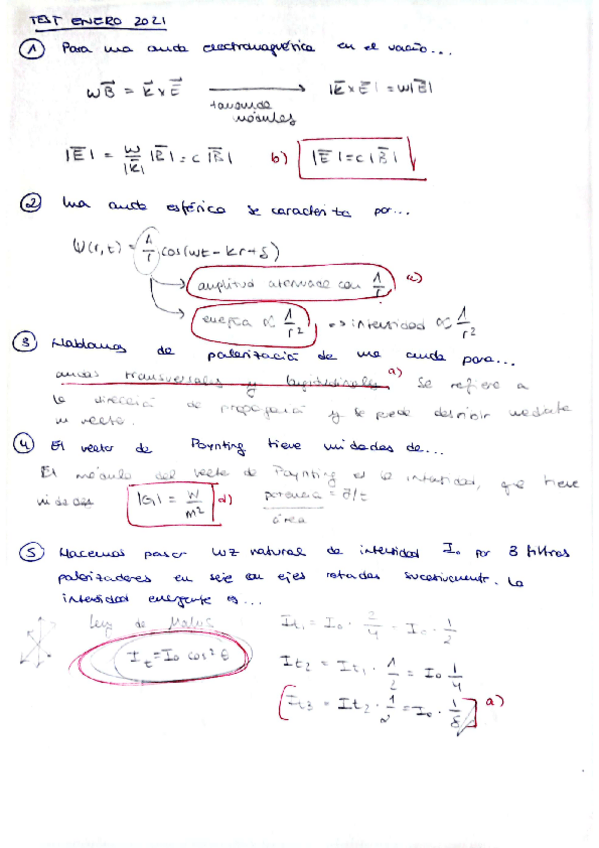 TEST ENERO 2021
① Para una onda electromagnética en el vacío...
wB⃗ = k⃗ x E⃗ ⟶ |k⃗ x E⃗| = w|B⃗|
módulos
|E⃗| = w/|k⃗| |B⃗| = c |B⃗| b) |E⃗| = c|B⃗|
② Una onda esférica se caracteriza por...
Ψ(r,t) = 1/r cos(wt - kr + δ)
amplitud atenuada con 1/r c)
energía ∝ 1/r² => intensidad ∝ 1/r²
③ Hablamos de polarización de una onda para...
ondas transversales y longitudinales a) Se refiere a
la dirección de propagación y se puede describir mediante
un vector.
④ El vector de Poynting tiene unidades de...
El módulo del vector de Poynting es la intensidad, que tiene
unidades |G| = W/m² d) potencia/área
⑤ Hacemos pasar luz natural de intensidad I₀ por 3 filtros
polarizadores en serie con ejes rotados sucesivamente. La
intensidad emergente es...
Ley de Malus
It = I₀ cos² θ
It₁ = I₀ · 2/4 = I₀ · 1/2
It₂ = It₁ · 1/2 = I₀ 1/4
It₃ = It₂ · 1/2 = I₀ · 1/8 a)